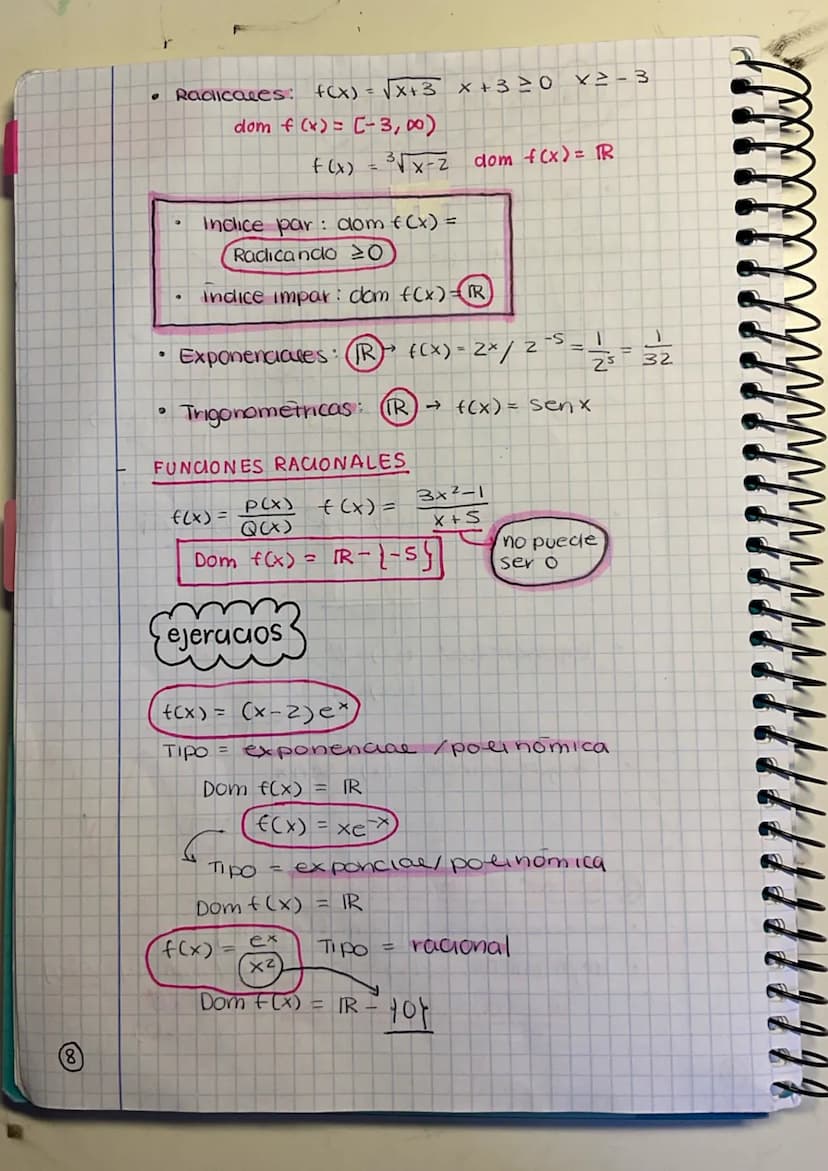 • Radicales: f(x) = √x+3 x + 3 ≥ 0 x ≥ - 3
dom f (x) = [-3, ∞)
f(x) = ³√x-2 dom f(x) = ℝ
• Índice par: dom f(x) =
Radicando ≥0
• índice impar: dom f(x)=ℝ
• Exponenciales: ℝ→ f(x) = 2ˣ/ 2⁻⁵ = 1/2⁵ = 1/32
• Trigonométricas: ℝ → f(x) = sen x
- FUNCIONES RACIONALES
f(x) = P(x)/Q(x) f(x) = 3x²-1/x+5
no puede
ser 0
Dom f(x) = ℝ - {-5}
ejercicios
f(x) = (x-2)eˣ
TIPO = exponencial /polinómica
Dom f(x) = ℝ
f(x) = xe⁻ˣ
TIPO = exponcial/ polinómica
Dom f(x) = ℝ
f(x) = eˣ/x² TIPO = racional
Dom f(x) = ℝ - {0}
8